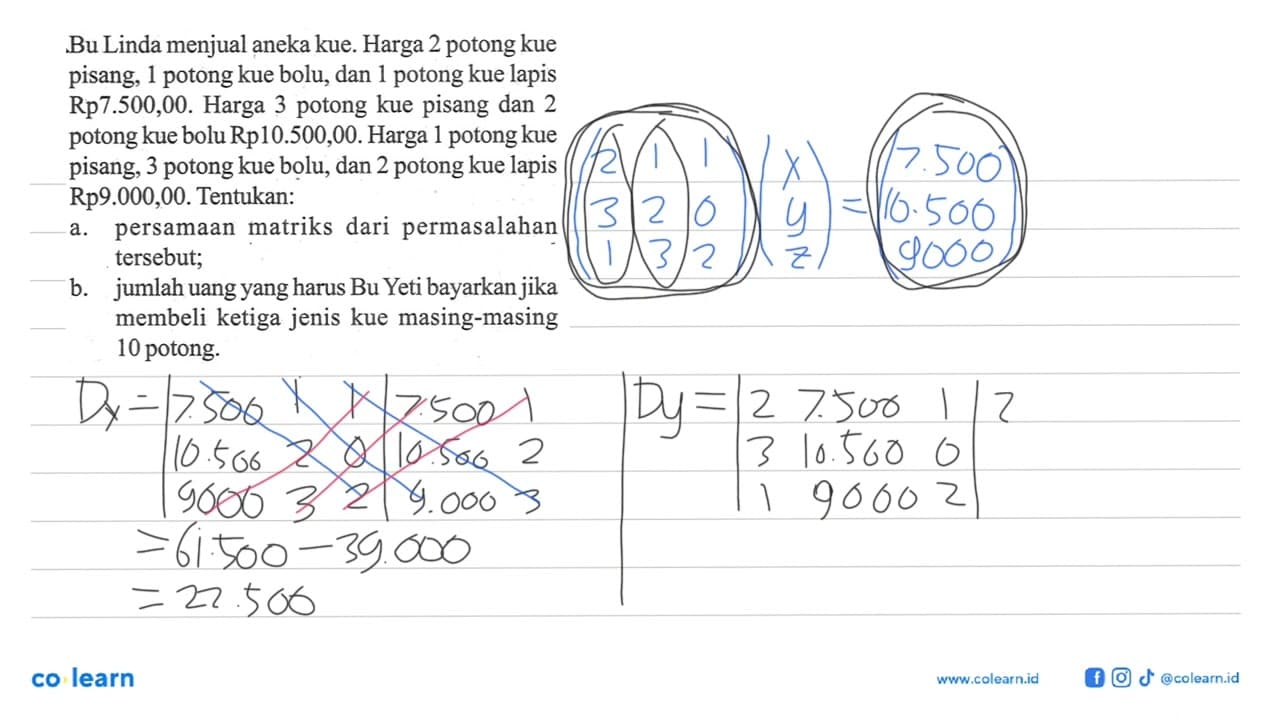 .Bu Linda menjual aneka kue. Harga 2 potong kue
pisang, 1 potong kue bolu, dan 1 potong kue lapis
Rp7.500,00. Harga 3 potong kue pisang dan 2
potong kue bolu Rp10.500,00. Harga 1 potong kue
pisang, 3 potong kue bolu, dan 2 potong kue lapis
Rp9.000,00. Tentukan:
a. persamaan matriks dari permasalahan
tersebut;
b. jumlah uang yang harus Bu Yeti bayarkan jika
membeli ketiga jenis kue masing-masing
10 potong.
2 1 1 x 7.500
3 2 0 y = 10.500
1 3 2 z 9000
Dx = 7.500 1 1 7.500 1
10.500 2 0 10.500 2
9000 3 2 9.000 3
= 61.500 - 39.000
= 22.500
Dy = 2 7.500 1 2
3 10.500 0
1 9000 2
co learn
www.colearn.id
@colearn.id